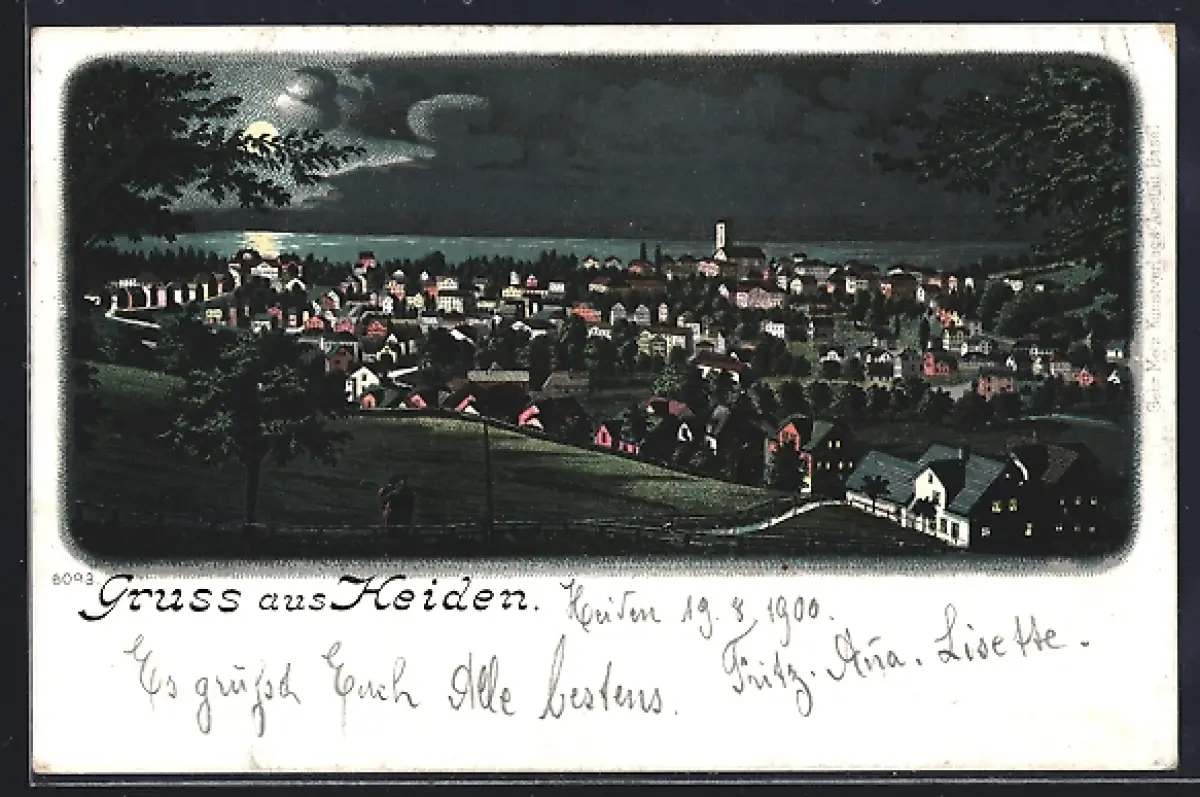 8093
Gruss aus Heiden.
Heiden 19. 8. 1900.
Es grüßt Euch Alle bestens.
Fritz. Aña. Lisette.
Gebr Metz Kunstverlags-Anstalt Basel